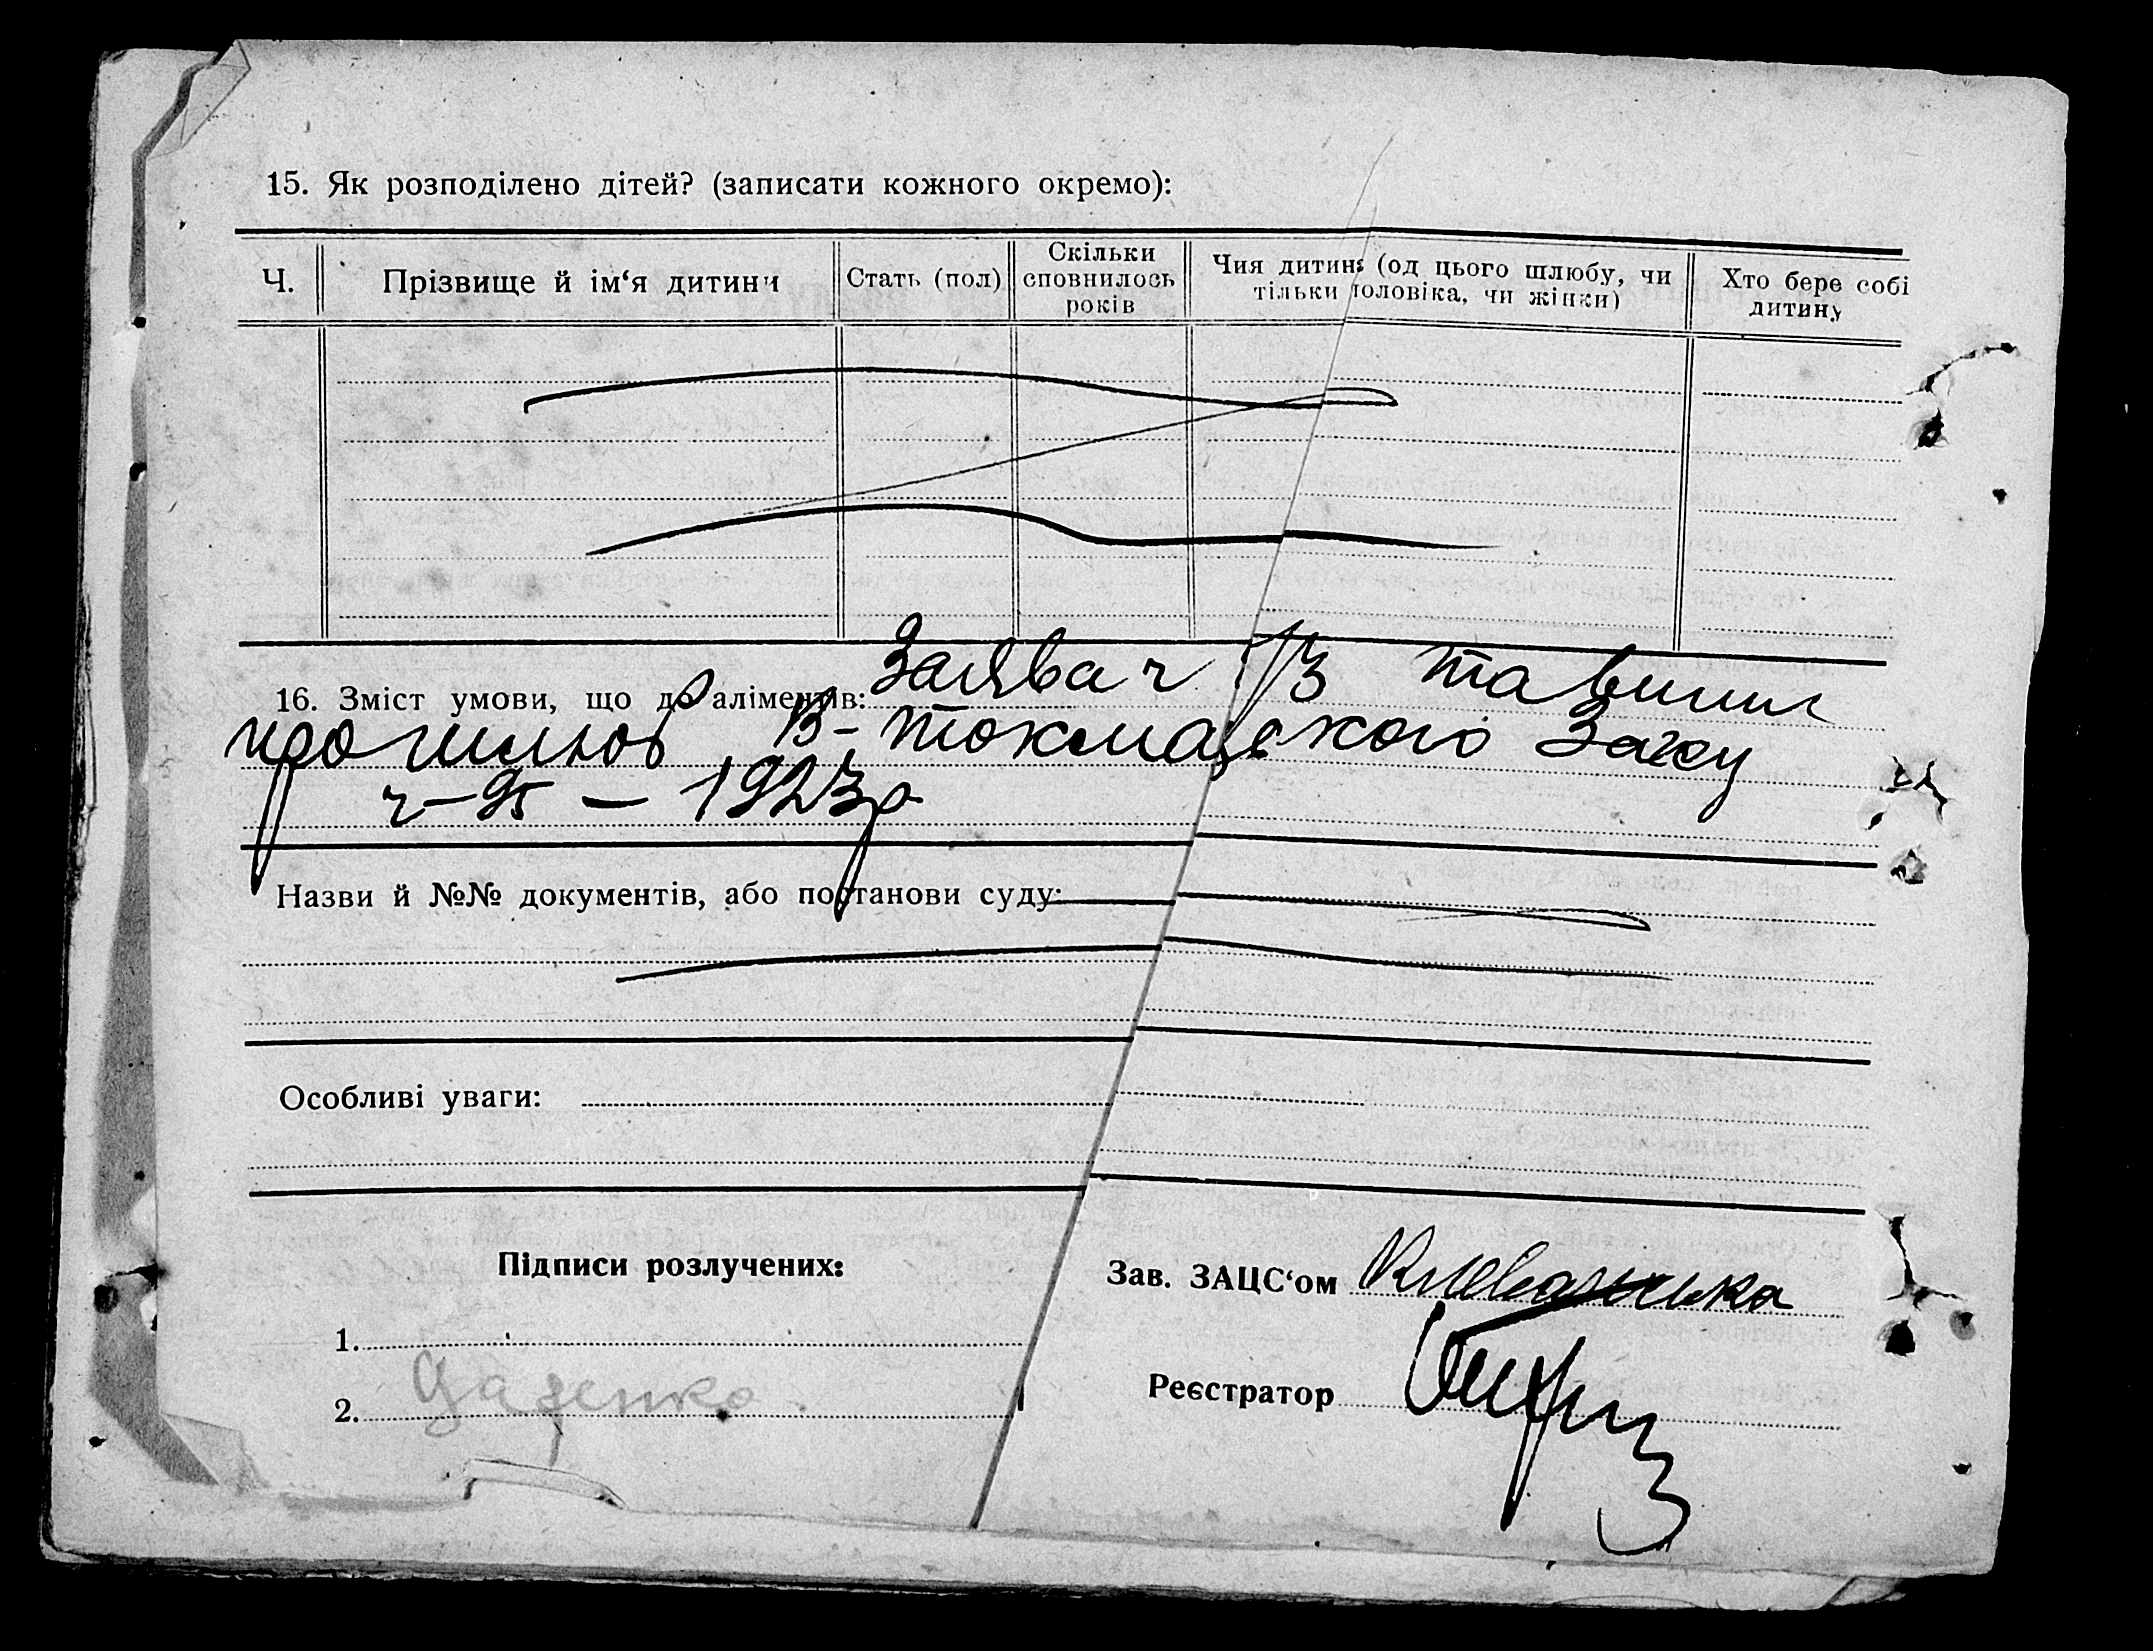 15. Як розподілено дітей? (записати кожного окремо):
Ч. Прізвище й ім‘я дитини Стать (пол) Скільки сповнилось років Чия дитина (од цього шлюбу, чи тільки чоловіка, чи жінки) Хто бере собі дитину
16. Зміст умови, що до аліментів: Заява ч 73 та
про шлюб В-Токмацького Загсу
ч-95 — 1923р
Назви й №№ документів, або постанови суду:
Особливі уваги:
Підписи розлучених:
Зав. ЗАЦС‘ом
1.
Реєстратор
2.